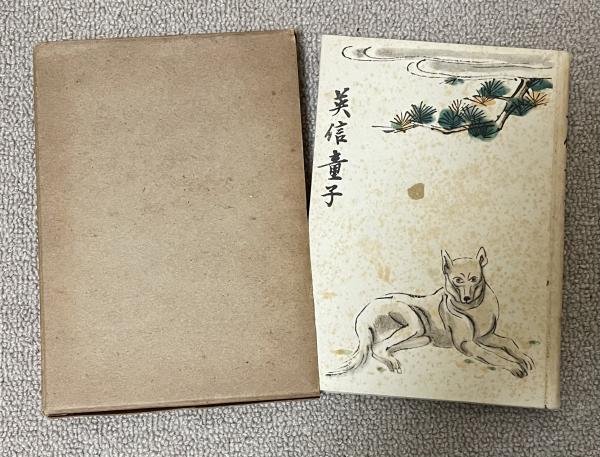 英信童子